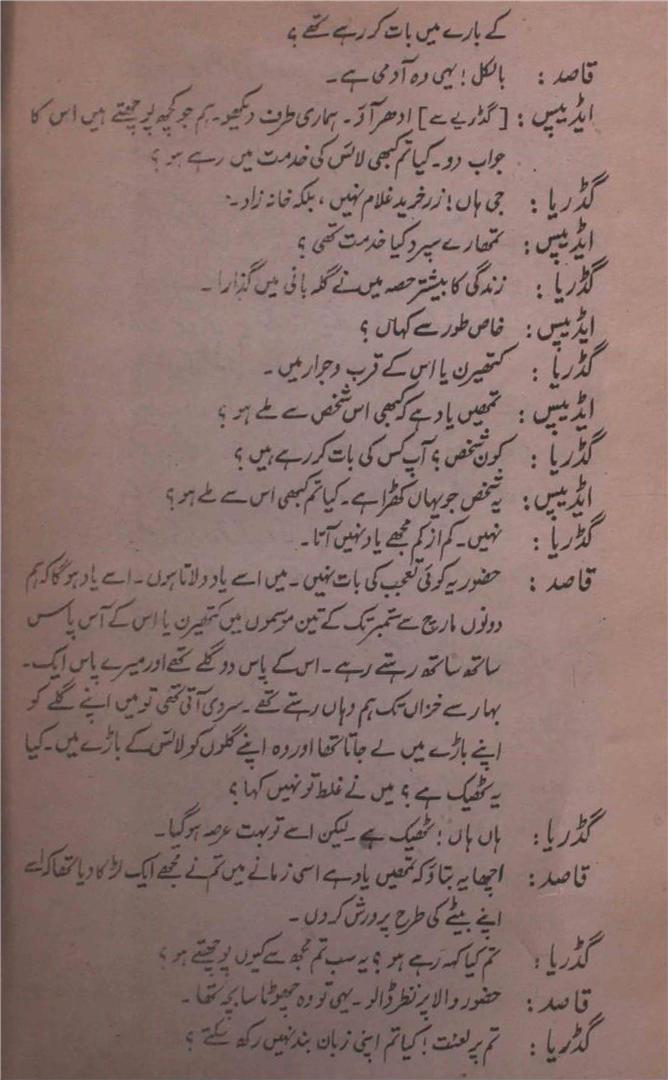 کے بارے میں بات کر رہے تھے ؟
قاصد : بالکل ! یہی وہ آدمی ہے۔
ایڈیپس : [ گڈریے سے ] ادھر آؤ۔ ہماری طرف دیکھو۔ ہم جو کچھ پوچھتے ہیں اس کا
جواب دو۔ کیا تم کبھی لائس کی خدمت میں رہے ہو ؟
گڈریا : جی ہاں ! زر خرید غلام نہیں ، بلکہ خانہ زاد۔
ایڈیپس : تمھارے سپرد کیا خدمت تھی ؟
گڈریا : زندگی کا بیشتر حصہ میں نے گلہ بانی میں گذارا۔
ایڈیپس : خاص طور سے کہاں ؟
گڈریا : کتھیرن یا اس کے قرب و جوار میں ۔
ایڈیپس : تمھیں یاد ہے کہ کبھی اس شخص سے ملے ہو ؟
گڈریا : کون شخص ؟ آپ کس کی بات کر رہے ہیں ؟
ایڈیپس : یہ شخص جو یہاں کھڑا ہے۔ کیا تم کبھی اس سے ملے ہو ؟
گڈریا : نہیں۔ کم از کم مجھے یاد نہیں آتا۔
قاصد : حضور یہ کوئی تعجب کی بات نہیں ۔ میں اسے یاد دلاتا ہوں۔ اسے یاد ہوگا کہ ہم
دونوں مارچ سے ستمبر تک کے تین موسموں میں کتھیرن یا اس کے آس پاس
ساتھ ساتھ رہتے رہے۔ اس کے پاس دو گلے تھے اور میرے پاس ایک۔
بہار سے خزاں تک ہم وہاں رہتے تھے۔ سردی آتی تھی تو میں اپنے گلے کو
اپنے باڑے میں لے جاتا تھا اور وہ اپنے گلوں کو لائس کے باڑے میں۔ کیا
یہ ٹھیک ہے ؟ میں نے غلط تو نہیں کہا ؟
گڈریا : ہاں ہاں ! ٹھیک ہے۔ لیکن اسے تو بہت عرصہ ہو گیا۔
قاصد : اچھا یہ بتاؤ کہ تمھیں یاد ہے اسی زمانے میں تم نے مجھے ایک لڑکا دیا تھا کہ اسے
اپنے بیٹے کی طرح پرورش کروں ۔
گڈریا : تم کیا کہہ رہے ہو ؟ یہ سب تم مجھ سے کیوں پوچھتے ہو ؟
قاصد : حضور والا پر نظر ڈالو۔ یہی تو وہ چھوٹا سا بچہ تھا۔
گڈریا : تم پر لعنت ! کیا تم اپنی زبان بند نہیں رکھ سکتے ؟